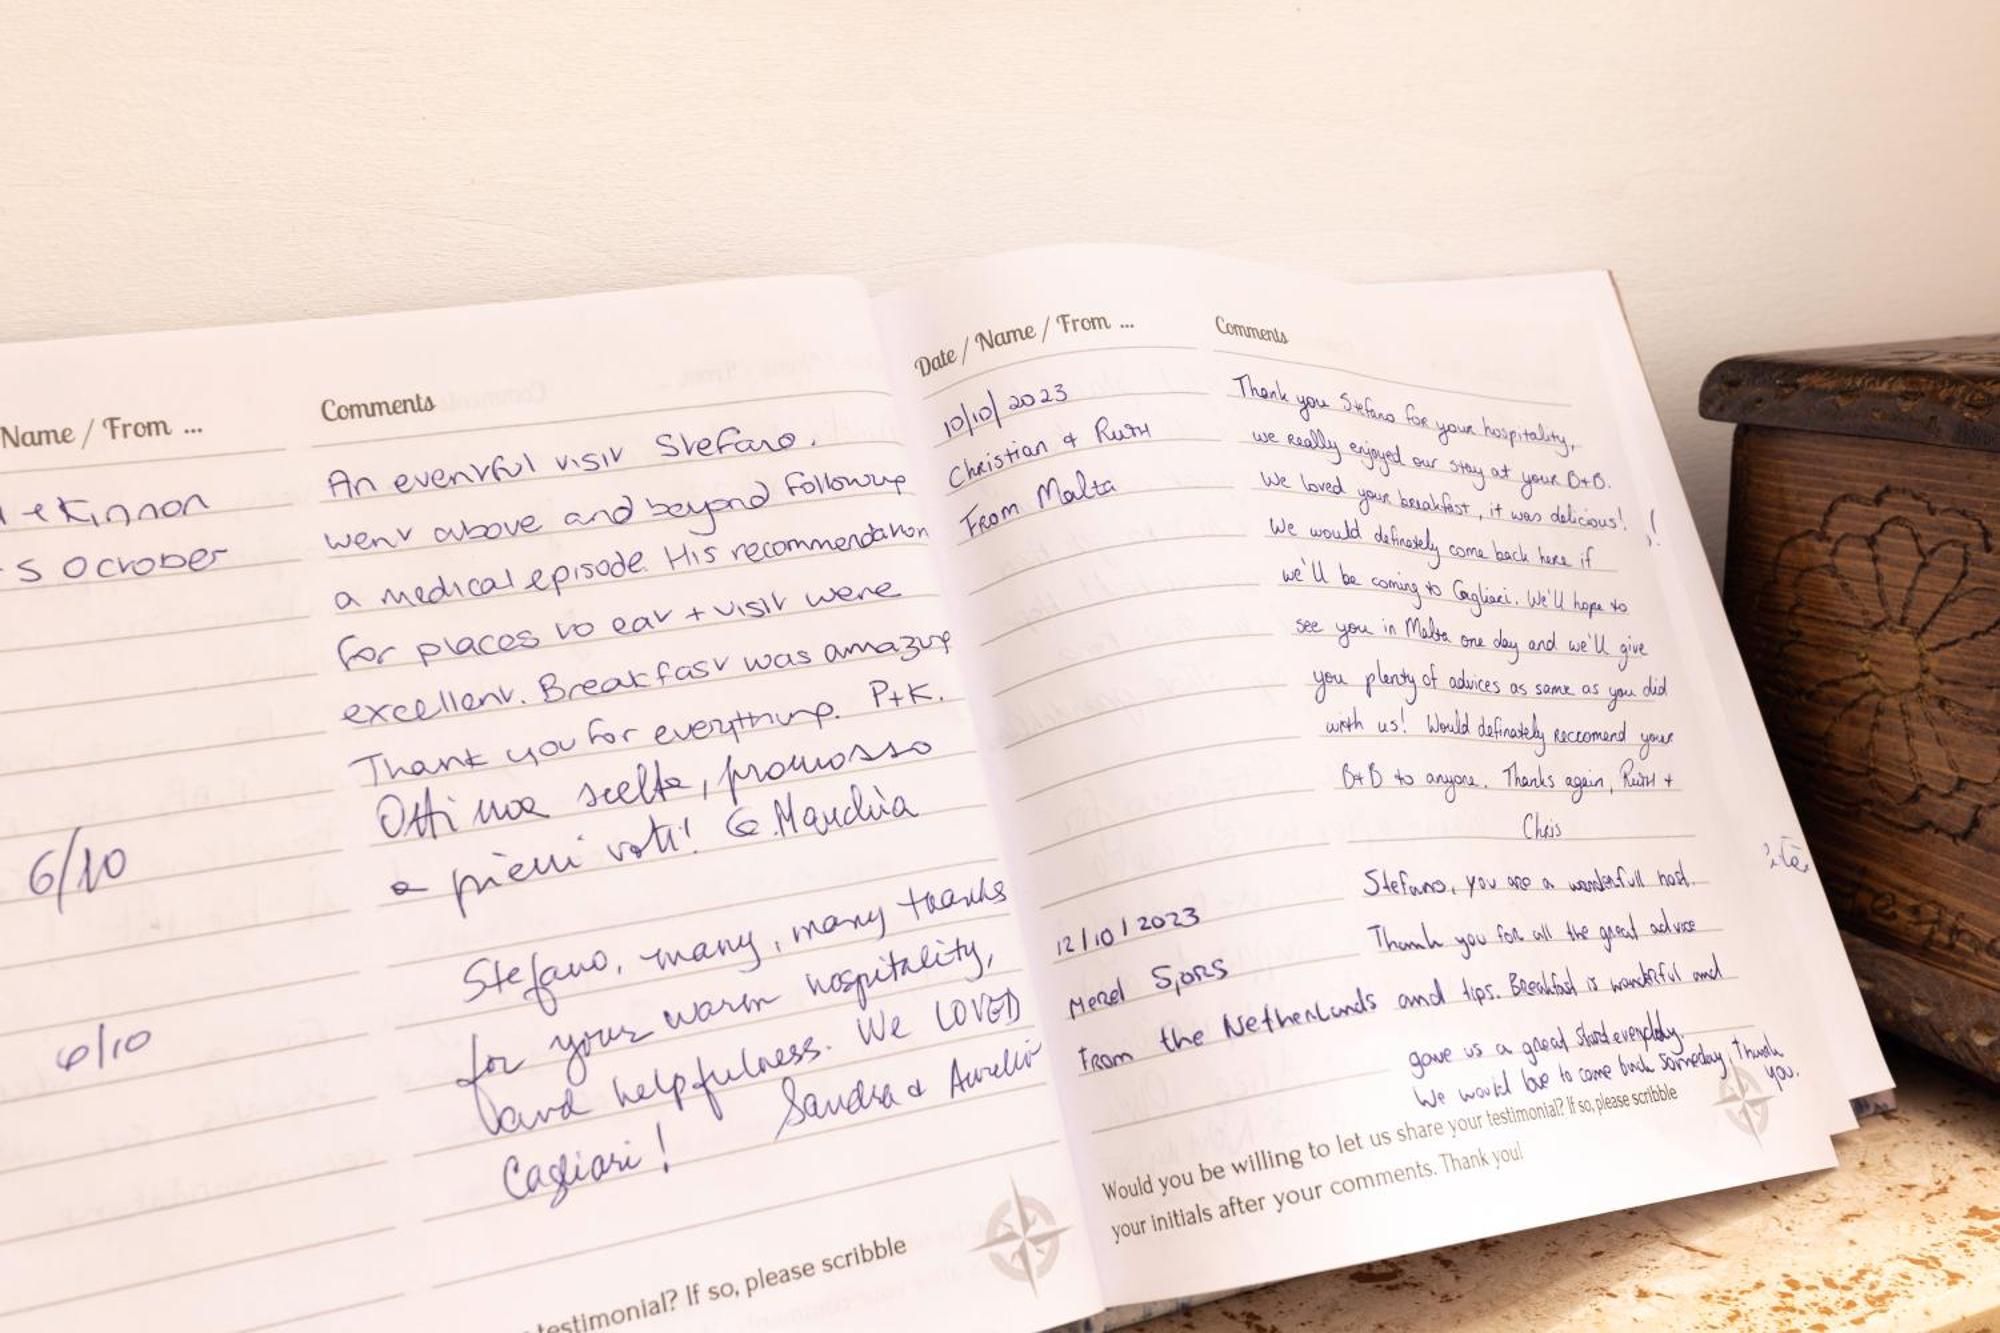 Name / From ...
Comments
Kinnon
5 October
An eventful visit Stefano.
went above and beyond following
a medical episode. His recommendation
for places to eat + visit were
excellent. Breakfast was amazing
Thank you for everything. P+K.
6/10
Ottima scelta, promosso
a pieni voti! G. Marchia
6/10
Stefano, many, many thanks
for your warm hospitality,
and helpfulness. We LOVED
Cagliari! Sandra & Aurelio
testimonial? If so, please scribble
Date / Name / From ...
Comments
10/10/2023
Christian & Ruth
From Malta
Thank you Stefano for your hospitality,
we really enjoyed our stay at your B+B.
We loved your breakfast, it was delicious! !
We would definately come back here if
we'll be coming to Cagliari. We'll hope to
see you in Malta one day and we'll give
you plenty of advices as same as you did
with us! Would definately reccomend your
B+B to anyone. Thanks again, Ruth +
Chris
12/10/2023
Merel Sjors
From the Netherlands
Stefano, you are a wonderfull host.
Thank you for all the great advice
and tips. Breakfast is wonderful and
gave us a great start everyday.
We would love to come back someday, Thank
you.
Would you be willing to let us share your testimonial? If so, please scribble
your initials after your comments. Thank you!